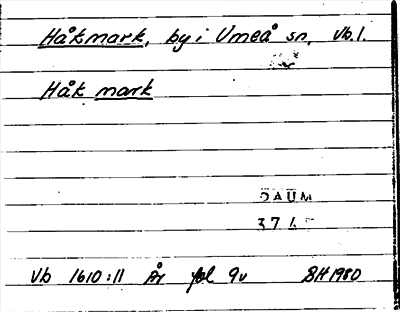 Håkmark, by i Umeå sn, Vb. l.
Håk mark
DAUM
Vb 1610:11 År fol 9v BH 1980